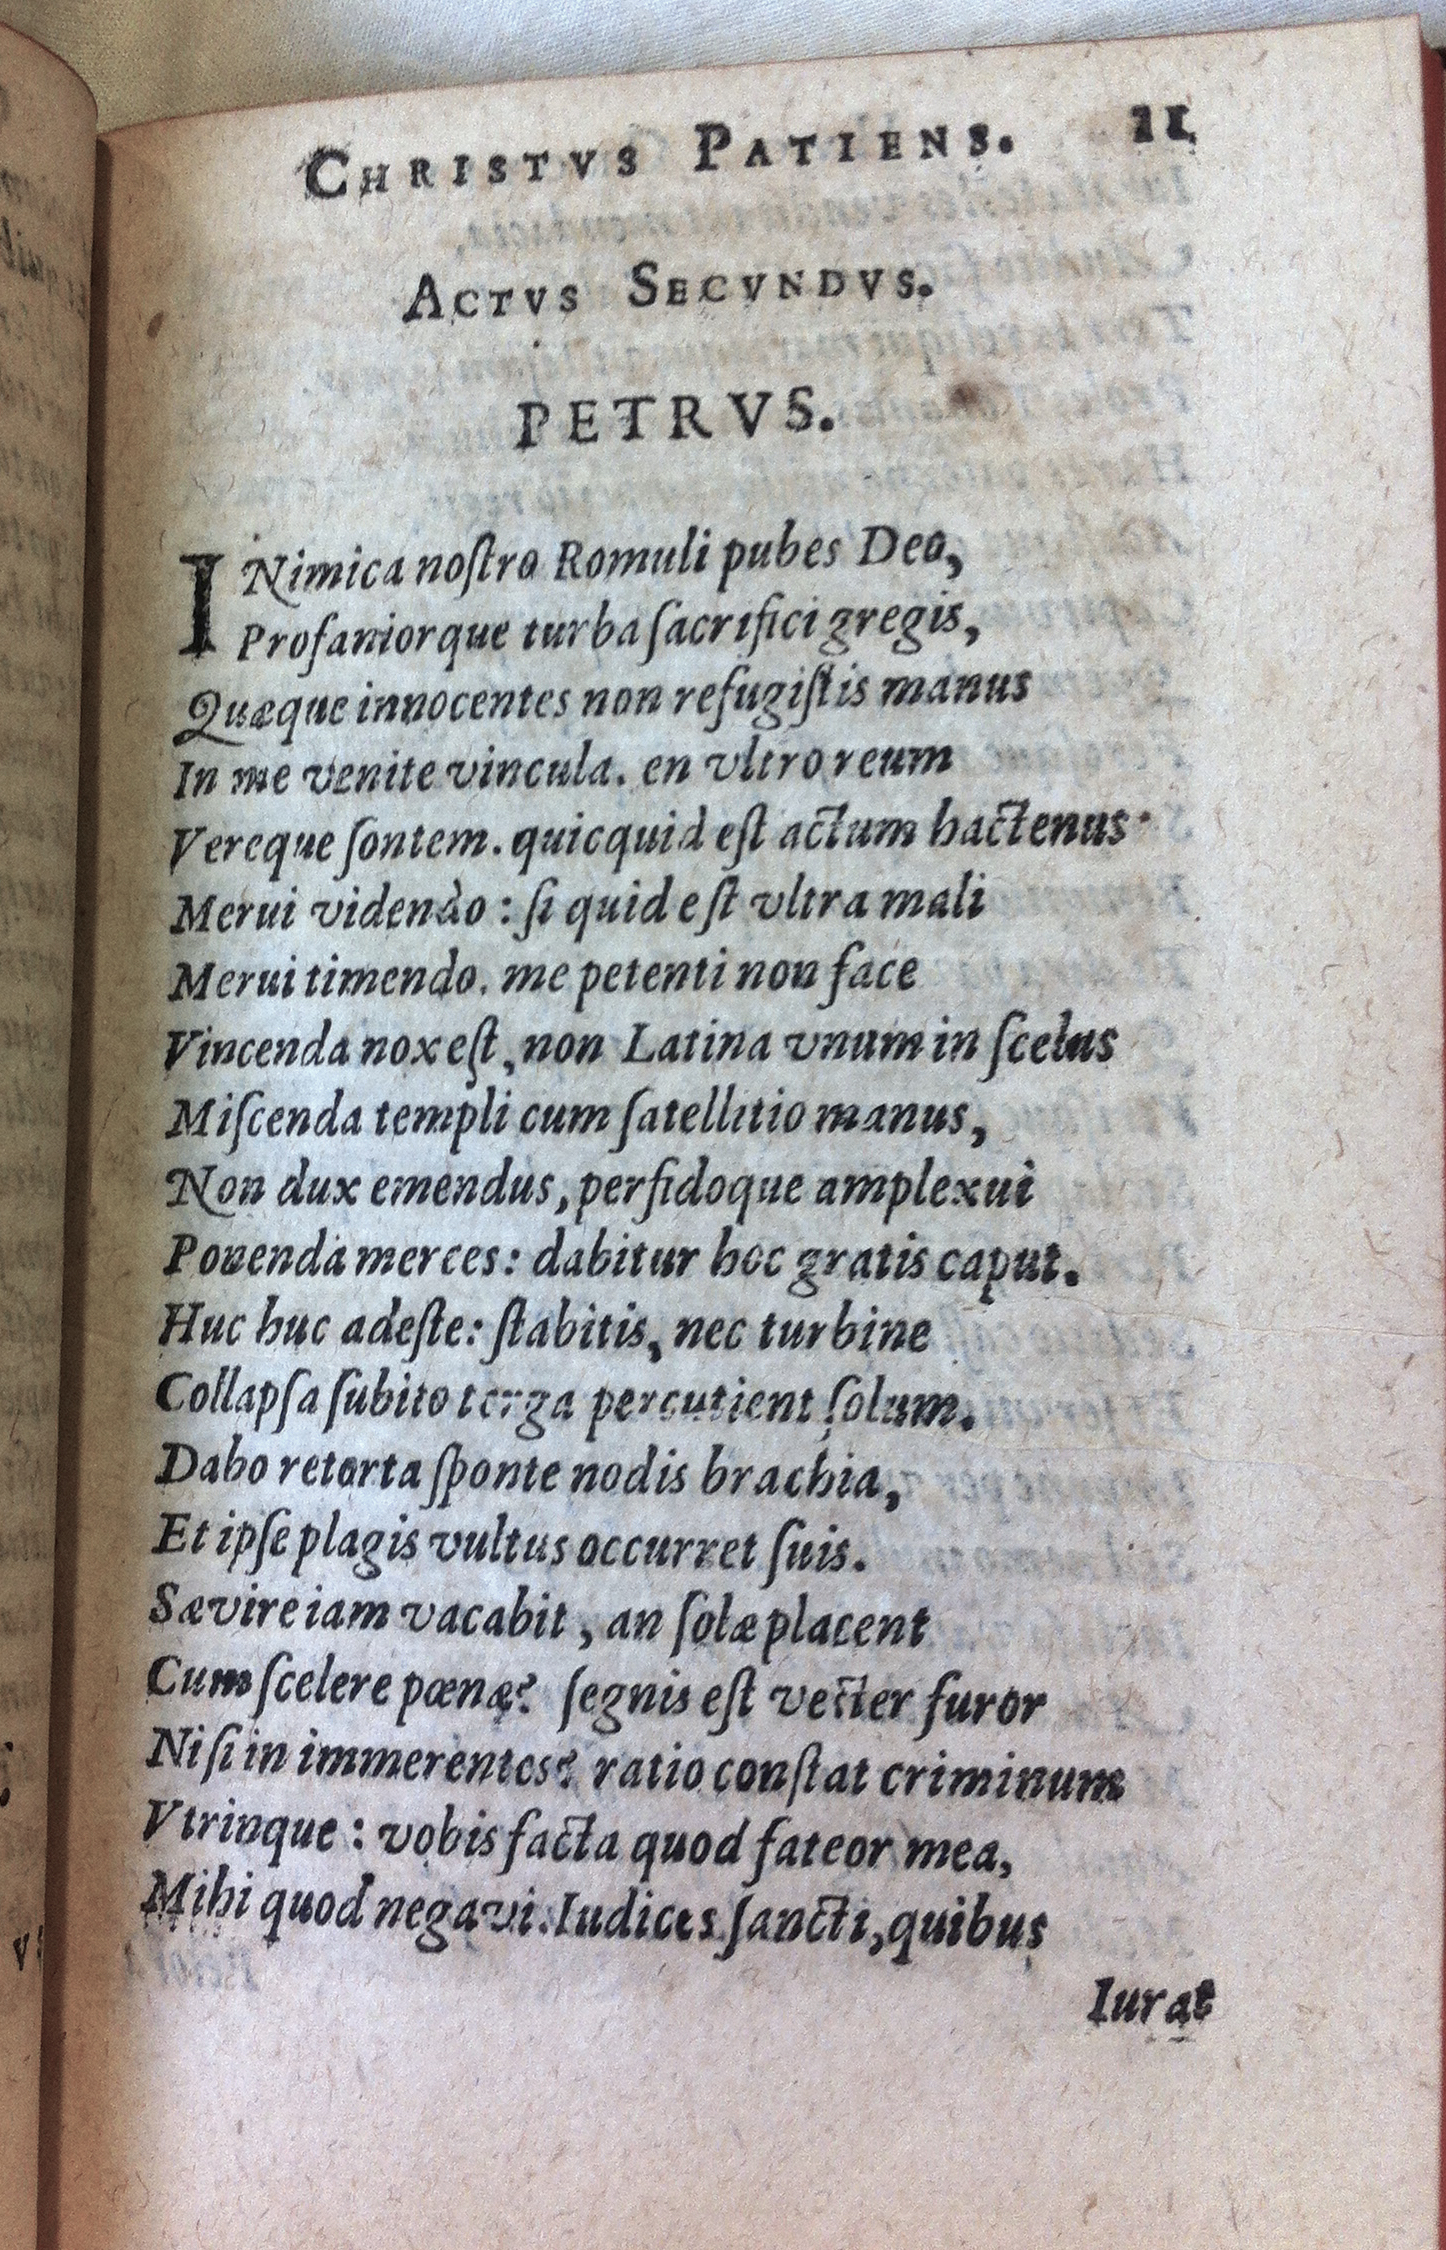 CHRISTVS PATIENS. 11
ACTVS SECVNDVS.
PETRVS.
INimica noſtro Romuli pubes Deo,
Profaniorque turba ſacrifici gregis,
Quæque innocentes non refugiſtis manus
In me venite vincula. en vltro reum
Vereque ſontem. quicquid eſt actum hactenus
Merui videndo : ſi quid eſt vltra mali
Merui timendo. me petenti non face
Vincenda nox eſt, non Latina vnum in ſcelus
Miſcenda templi cum ſatellitio manus,
Non dux emendus, perfidoque amplexui
Ponenda merces: dabitur hoc gratis caput.
Huc huc adeſte: ſtabitis, nec turbine
Collapſa ſubito terga percutient ſolum.
Dabo retorta ſponte nodis brachia,
Et ipſe plagis vultus occurret ſuis.
Sævire iam vacabit, an ſolæ placent
Cum ſcelere pœnæ? ſegnis eſt veſter furor
Niſi in immerentes? ratio conſtat criminum
Vtrinque : vobis facta quod fateor mea,
Mihi quod negavi. Iudices ſancti, quibus
Iurat